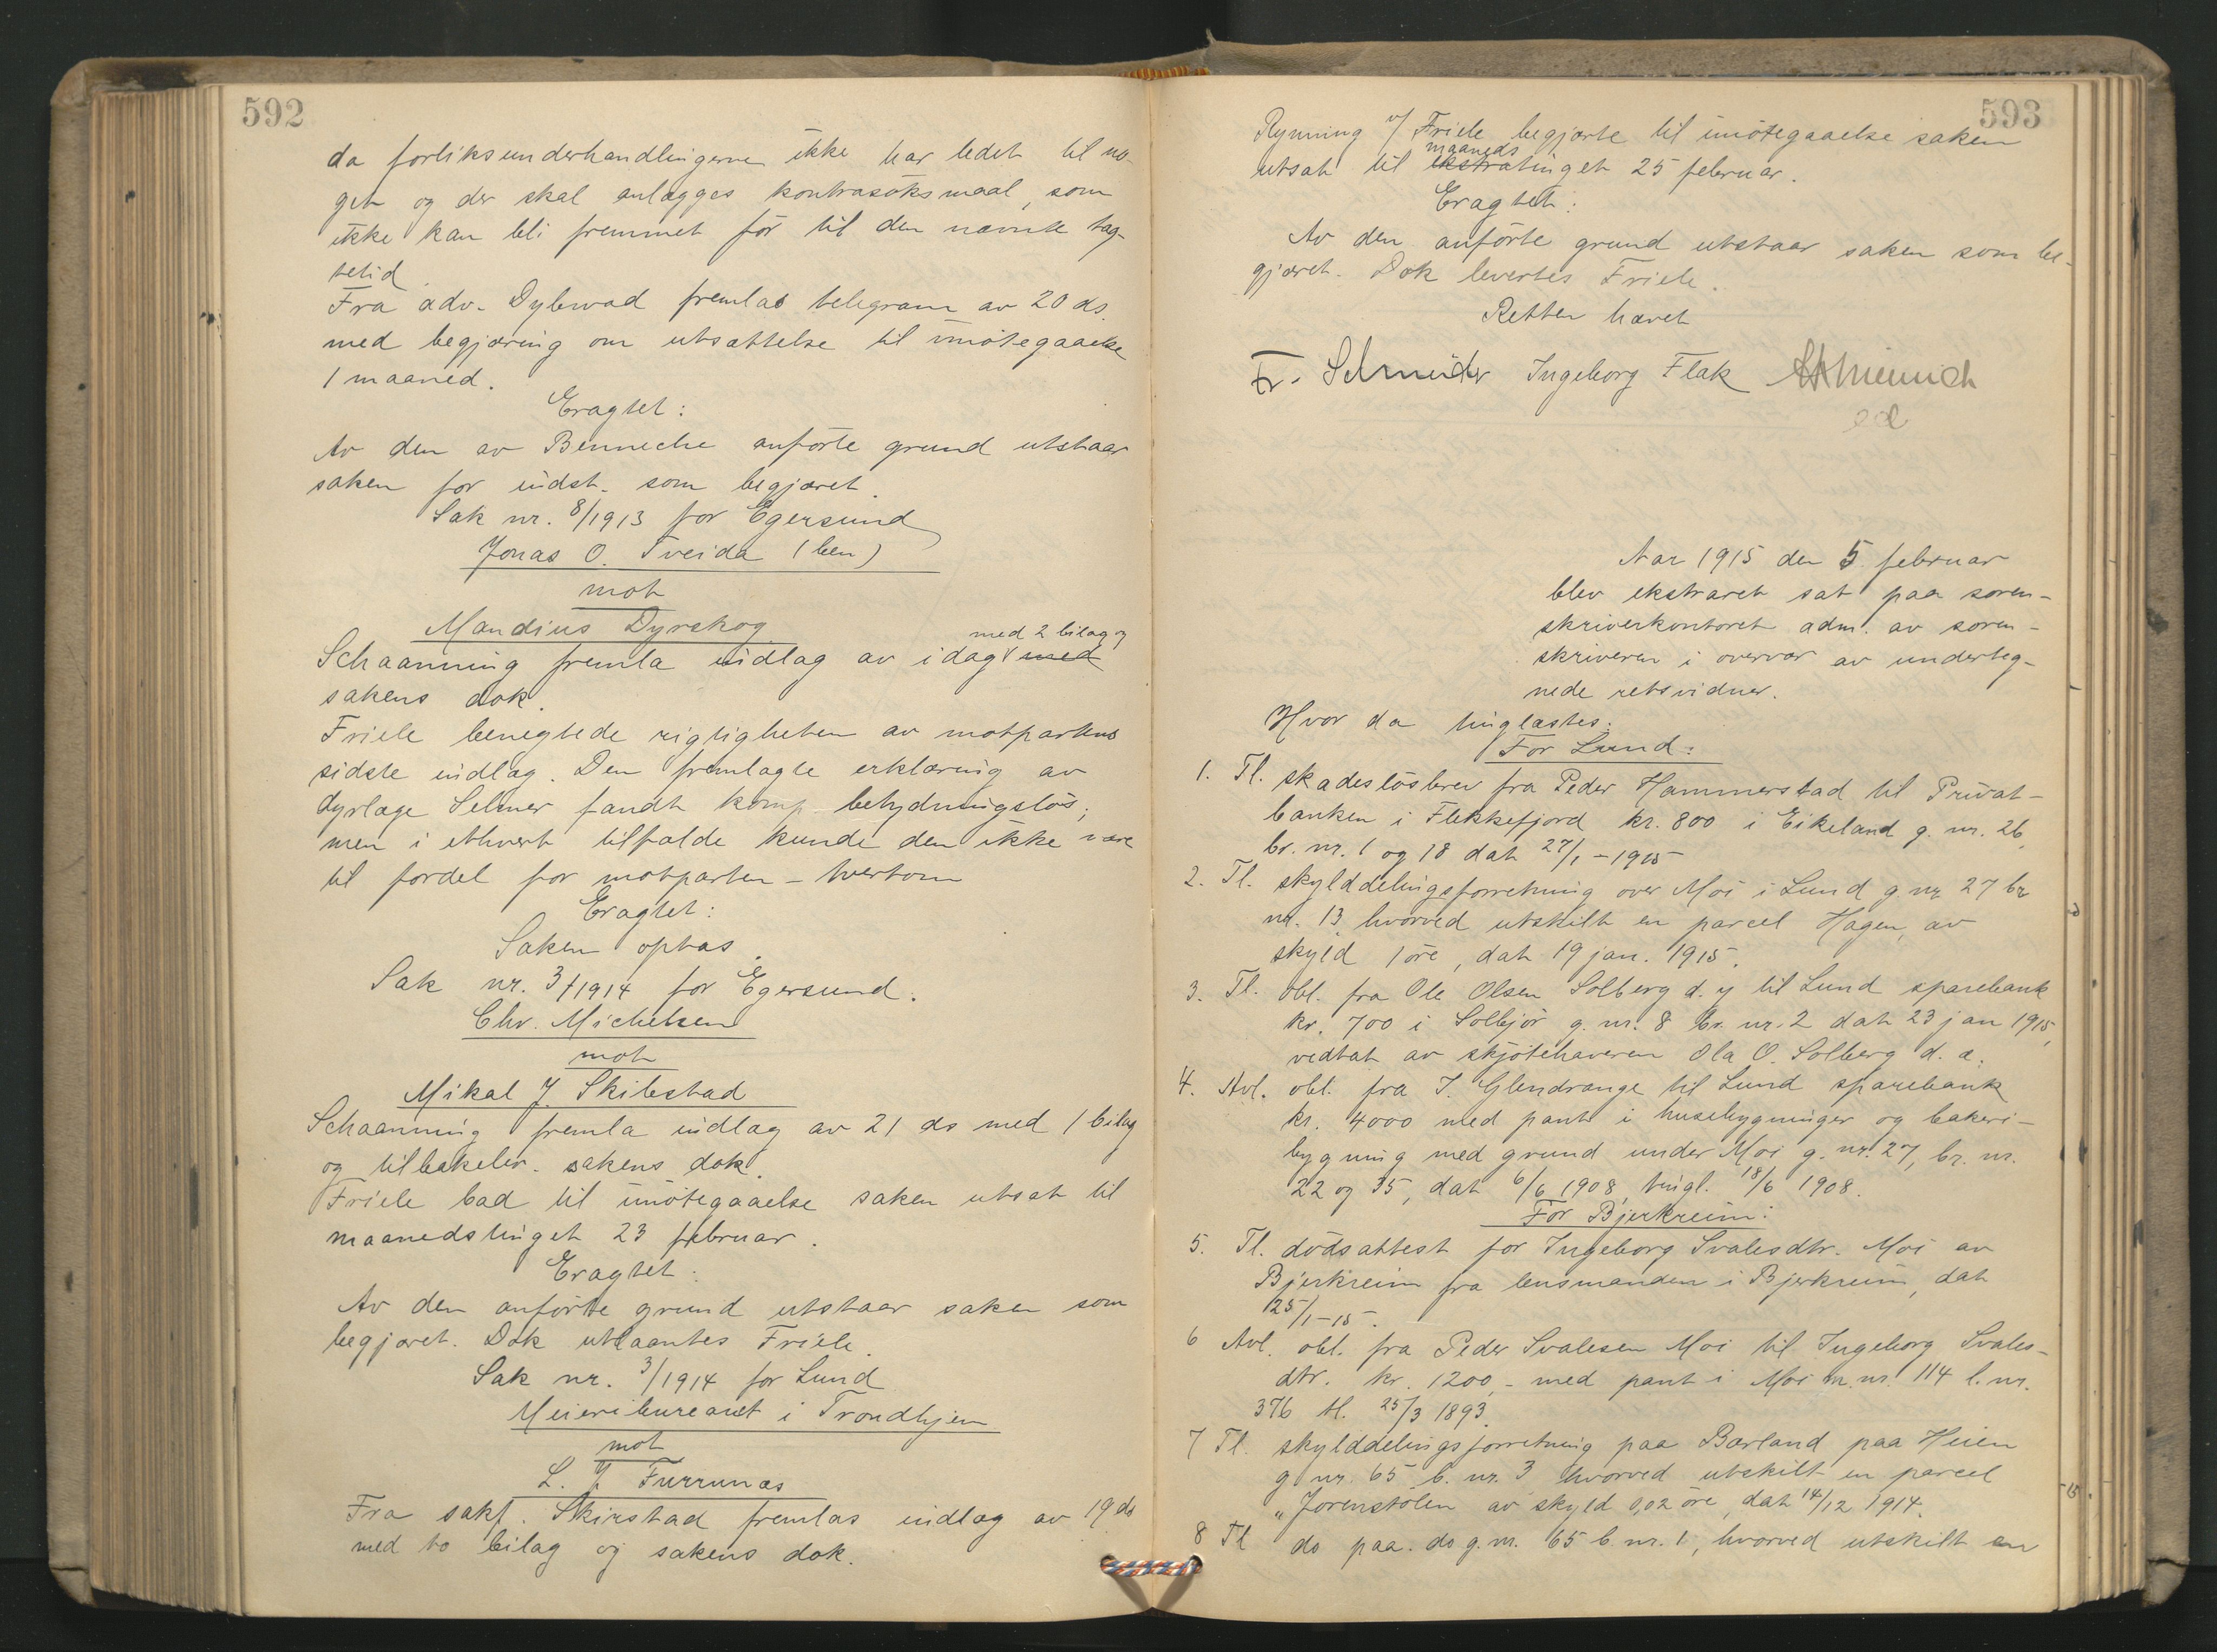 592
da forliksunderhandlingerne ikke har ledet til no-
get og der skal anlægges kontrasöksmaal, som
ikke kan bli fremmet för til den nævnte tæg-
tetid.
Fra adv. Dybwad fremlas telegram av 20 ds.
med begjæring om utsættelse til imötegaaelse
1 maaned.
Eragtet:
Av den av Benneche anförte grund utstaar
saken for indst. som begjæret.
Sak nr. 8/1913 for Egersund
Jonas O. Tveida (ben)
mot
Mandius Dyrskog
med 2 bilag og
Schaanning fremla indlag av idag med
sakens dok.
Friele benegtede rigtigheten av motpartens
sidste indlæg. Den fremlagte erklæring av
dyrlæge Selmer fandt komp. betydningslös;
men i ethvert tilfælde kunde den ikke være
til fordel for motparten - tvertom
Eragtet:
Saken optas.
Sak nr. 3/1914 for Egersund.
Chr. Michelsen
mot
Mikal J. Skibstad
Schaanning fremla indlæg av 21 ds med 1 bilag
og tilbakelev. sakens dok.
Friele bad til imötegaaelse saken utsat til
maanedstinget 23 februar.
Eragtet:
Av den anförte grund utstaar saken som
begjæret. Dok utlaantes Friele.
Sak nr. 3/1914 for Lund
Meieribureauet i Trondhjem
mot
L. J. Furrunæs
Fra sakf. Skirstad fremlas indlæg av 19 ds
med to bilag og sakens dok.
593
Rynning v/ Friele begjærte til imötegaaelse saken
maaneds
utsat til ekstratinget 25 februar.
Eragtet:
Av den anförte grund utstaar saken som be-
gjæret. Dok levertes Friele.
Retten hævet
Fr. Schneider Ingeborg Flak
Aar 1915 den 5. februar
blev ekstraret sat paa soren-
skriverkontoret adm. av soren-
skriveren i overvær av underteg-
nede retsvidner.
Hvor da tinglæstes:
For Lund:
1. Tl. skadeslösbrev fra Peder Hammerstad til Privat-
banken i Flekkefjord kr. 800 i Eikeland g. nr. 26,
br. nr. 1 og 18 dat 27/1-1915
2. Tl. skylddelingsforretning over Moi i Lund g. nr. 27 br
nr. 13 hvorved utskilt en parcel Hagen, av
skyld 1 öre, dat 19 jan. 1915.
3. Tl. obl. fra Ole Olsen Solberg d. y til Lund sparebank
kr. 700 i Solbjör g. nr. 8 br. nr. 2 dat 23 jan 1915,
vedtat av skjötehaveren Ola O. Solberg d. æ.
4. Avl. obl. fra I. Glendrange til Lund sparebank
kr. 4000 med pant i husebygninger og bakeri-
bygning med grund under Moi g. nr. 27, br. nr.
22 og 35, dat 6/6 1908, tingl. 18/6 1908.
For Bjerkreim:
5. Tl. dödsattest for Ingeborg Svalesdtr. Moi av
Bjerkreim fra lensmanden i Bjerkreim, dat
25/1-15.
6 Avl. obl. fra Peder Svalesen Moi til Ingeborg Svales-
dtr. kr. 1200,- med pant i Moi m. nr. 114 l. nr.
376 tl. 25/3 1893.
7 Tl. skylddelingsforretning paa Barland paa Heien
g. nr. 65 b. nr. 3 hvorved utskilt en parcel
„Jorenstölen av skyld 0,02 öre, dat 14/12 1914.
8 Tl do paa. do g. nr. 65 b. nr. 1, hvorved utskilt en